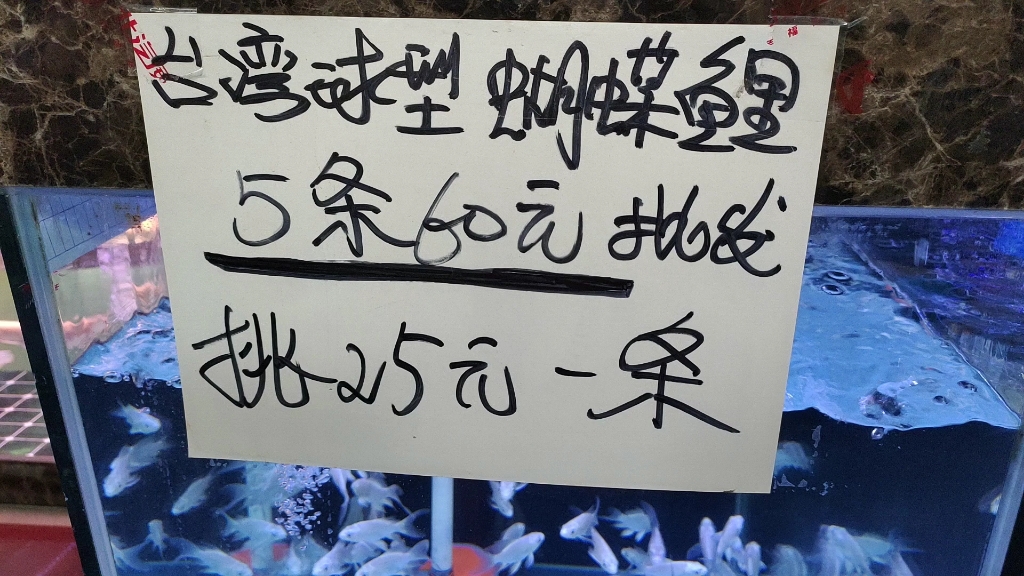 台湾球型蝴蝶鲤
5条60元批发
挑25元一条